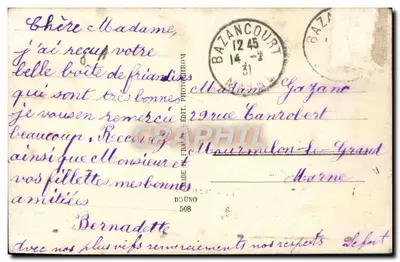 Chère Madame,
j'ai reçu votre
belle boîte de friandises
qui sont très bonnes
je vous en remercie
beaucoup. Recevez
ainsi que Monsieur et
vos fillettes mes bonnes
amitiées
Bernadette
avec nos plus vifs remerciements nos respects
BAZANCOURT
12 45
14 -2
31
MARNE
BAZANCOURT
Madame Gazano
29 rue Canrobert
Mourmelon-le-Grand
Marne
EDIT. PHOTOCHROM
DOUNO
508